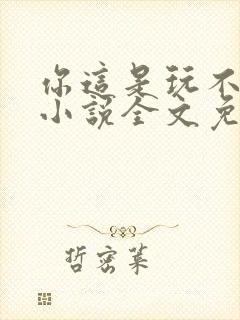 你這是玩不
小說全文免
哲密葉